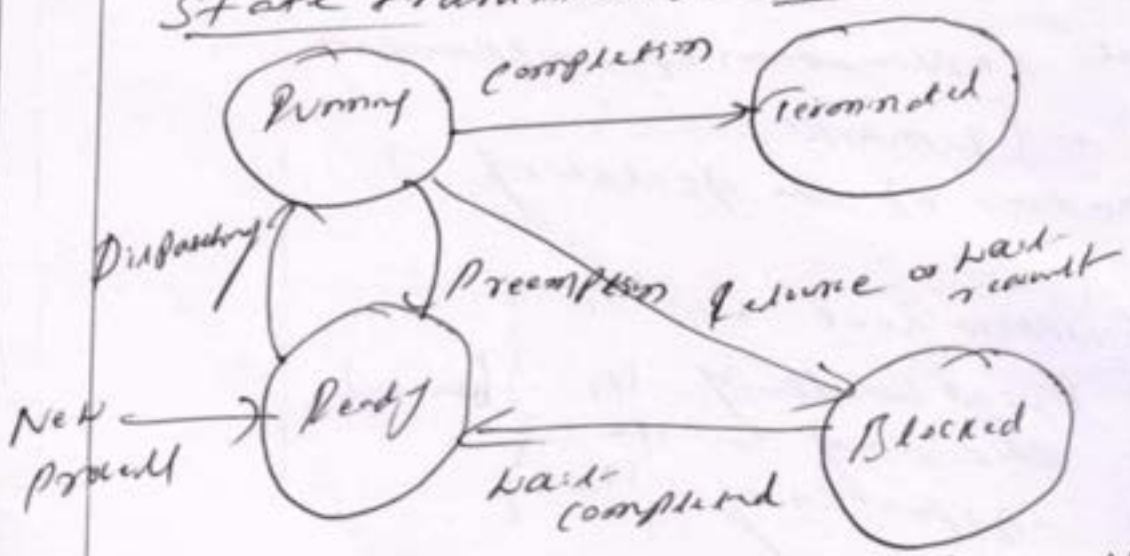 State
Running
Completion
Terminated
Dispatching
Preemption
Resource or wait
request
New
process
Ready
Blocked
wait
completed